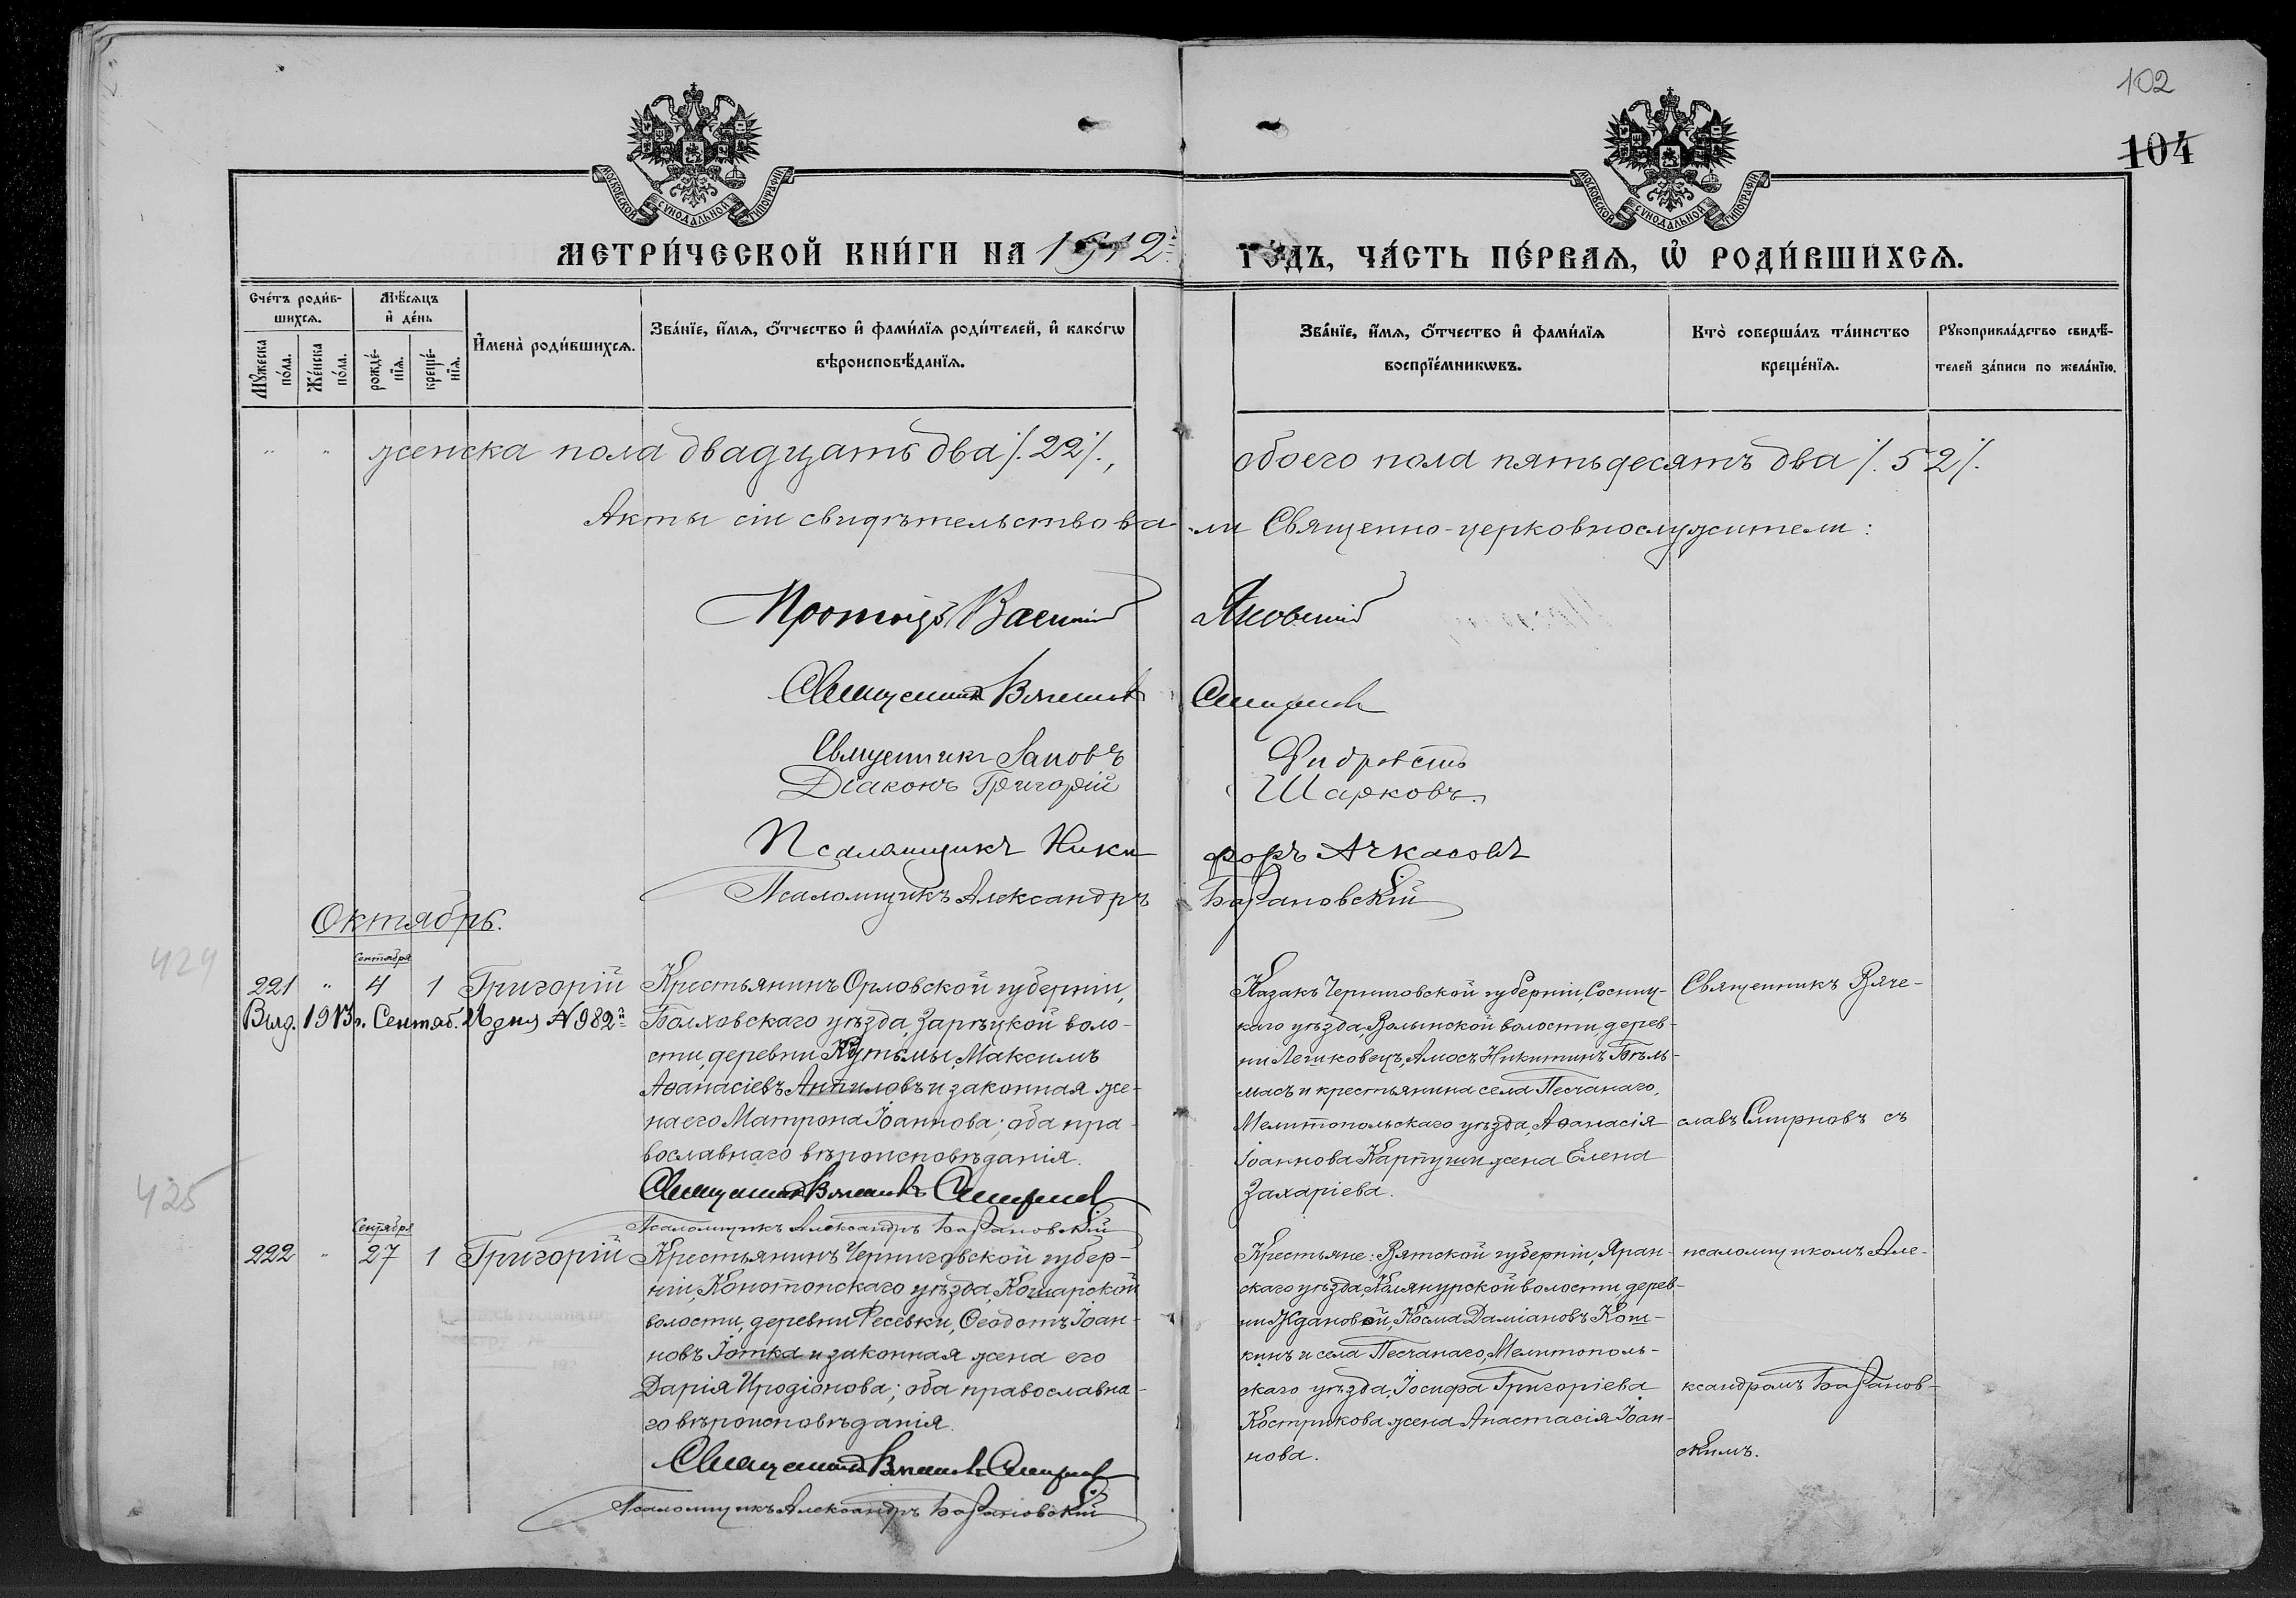 102
104
МОСКОВСКОЙ СѴНОДАЛЬНОЙ ТИПОГРАФІИ
МОСКОВСКОЙ СѴНОДАЛЬНОЙ ТИПОГРАФІИ
МЕТРИ́ЧЕСКОЙ КНИ́ГИ НА 1912й
ГО́ДЪ, ЧА́СТЬ ПЕ́РВАѦ, Ѡ҆ РОДИ́ВШИХСѦ.
Сче́тъ роди́в-
шихсѧ.
Мѣ́сѧцъ
и҆ де́нь
Мꙋ́жеска
по́ла.
Же́нска
по́ла.
рожде́-
нїѧ.
креще́-
нїѧ.
И҆мена̀ роди́вшихсѧ.
Зва́нїе, и҆́мѧ, ѻ҆́тчество и҆ фами́лїѧ роди́телей, и҆ како́гѡ
вѣроисповѣ́данїѧ.
Зва́нїе, и҆́мѧ, ѻ҆́тчество и҆ фами́лїѧ
воспрїе́мникѡвъ.
Кто̀ соверша́лъ та́инство
креще́нїѧ.
Рꙋкоприкла́дство свидѣ́-
телей за́писи по жела́нїю.
" " женска пола двадцать два /.22/., обоего пола пятьдесятъ два /.52/.
Акты сіи свидѣтельствова-ли Священно-церковнослужители:
Протоіер Василій Яновскій
Священник Вячеслав Смирнов
Священникъ
Діаконъ Григорій Шарковъ.
Псаломщикъ Никифоръ Ачкасовъ
Псаломщикъ Александръ Барановскій
Октябрь.
429
Сентября
221 " 4 1 Григорій
Выд. 1913г. Сентяб. 26 дня № 982й
Крестьянинъ Орловской губерніи,
Болховскаго уѣзда, Зарѣцкой воло-
сти, деревни Кутьмы, Максимъ
Аѳанасіевъ Антиловъ и законная же-
на его Матрона Іоаннова; оба пра-
вославнаго вѣроисповѣданія.
Священник Вячеславъ Смирнов
Псаломщикъ Александръ Барановскій
Казакъ Черниговской губерніи, Сосниц-
каго уѣзда, Волынской волости, дерев-
ни Лешковецъ, Амосъ Никитинъ Бѣль-
масъ и крестьянина села Песчанаго,
Мелитопольскаго уѣзда, Аѳанасія
Іоаннова Карпуши жена Елена
Захаріева.
Священникъ Вяче-
славъ Смирновъ съ
425
Сентября
222 " 27 1 Григорій
Крестьянинъ Черниговской губер-
ніи, Конотопскаго уѣзда, Кошарской
волости, деревни Фесевки, Ѳеодотъ Іоан-
новъ Іотка и законная жена его
Дарія Иродіонова; оба православна-
го вѣроисповѣданія.
Священник Вячеслав Смирнов
Псаломщикъ Александръ Барановскій
Крестьяне: Вятской губерніи, Яран-
скаго уѣзда, Колянурской волости, дерев-
ни Ждановой, Косма Даміановъ Кош-
кинъ и села Песчанаго, Мелитополь-
скаго уѣзда, Іосифа Григоріева
Кострикова жена Анастасія Іоан-
нова.
псаломщикомъ Але-
ксандромъ Баранов-
скимъ.